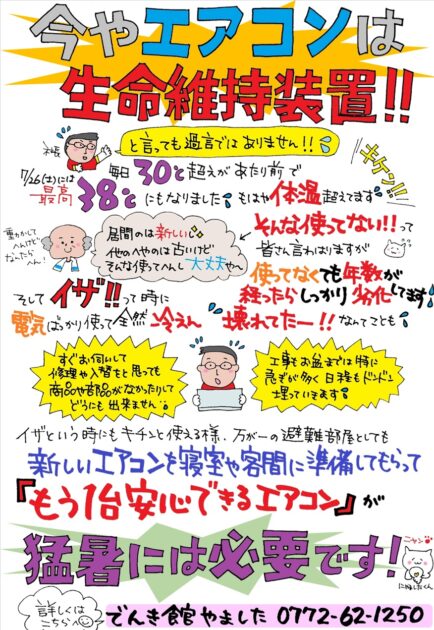 今やエアコンは
生命維持装置!!
と言っても過言ではありません!!
店長
毎日30℃超えがあたり前で
キケン!!
7/26(土)には
最高38℃にもなりましたもはや体温超えてます
そんな使ってない!!って
皆さん言わはりますが
動かして
へんけど
なんたら
へん!
居間のは新しい
他のへやのは古いけど
そんな使ってへんし大丈夫やへ
使ってなくても年数が
経ったらしっかり劣化してます
そしてイザ!!って時に
電気ばっかり使って全然冷えん
壊れてたー!!なんてことも
すぐお伺いして
修理や入替もと思っても
商品や部品がなかったりして
どうにも出来ません
工事もお盆までは特に
急ぎが多く日程もドンドン
埋っていきます!
イザという時にもキチンと使える様、万が一の避難部屋としても
新しいエアコンを寝室や客間に準備してもらって
『もう1台安心できるエアコン』が
猛暑には必要です!
ニャン
詳しくは
こちらへ
でんき館やました 0772-62-1250